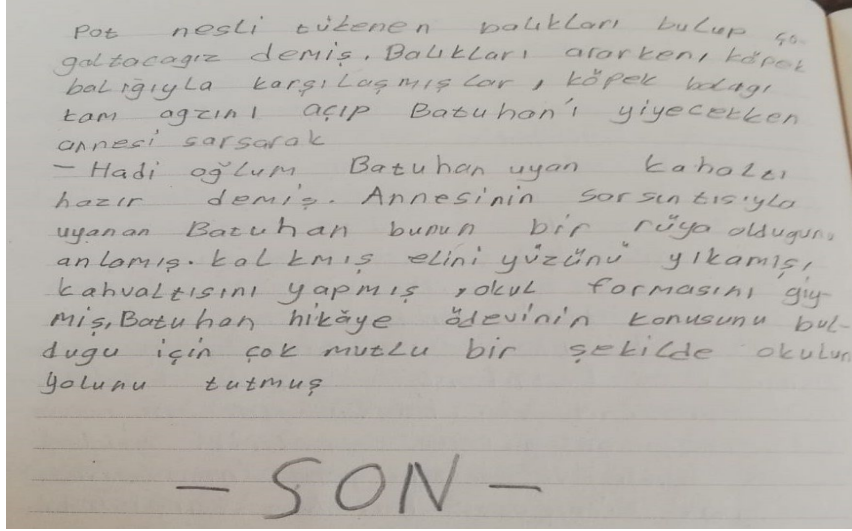 Pot nesli tükenen balıkları bulup ço-
galtacagız demiş. Balıkları ararken, köpek
balığıyla karşılaşmışlar, köpek balagı
tam agzını açıp Batuhan'ı yiyecekken
annesi sarsarak
- Hadi oğlum Batuhan uyan kahaltı
hazır demiş. Annesinin sarsıntısıyla
uyanan Batuhan bunun bir rüya oldugunu
anlamış. kalkmış elini yüzünü yıkamış,
kahvaltısını yapmış, okul formasını giy-
miş, Batuhan hikâye ödevinin konusunu bul-
dugu için çok mutlu bir şekilde okulun
yolunu tutmuş
- SON -